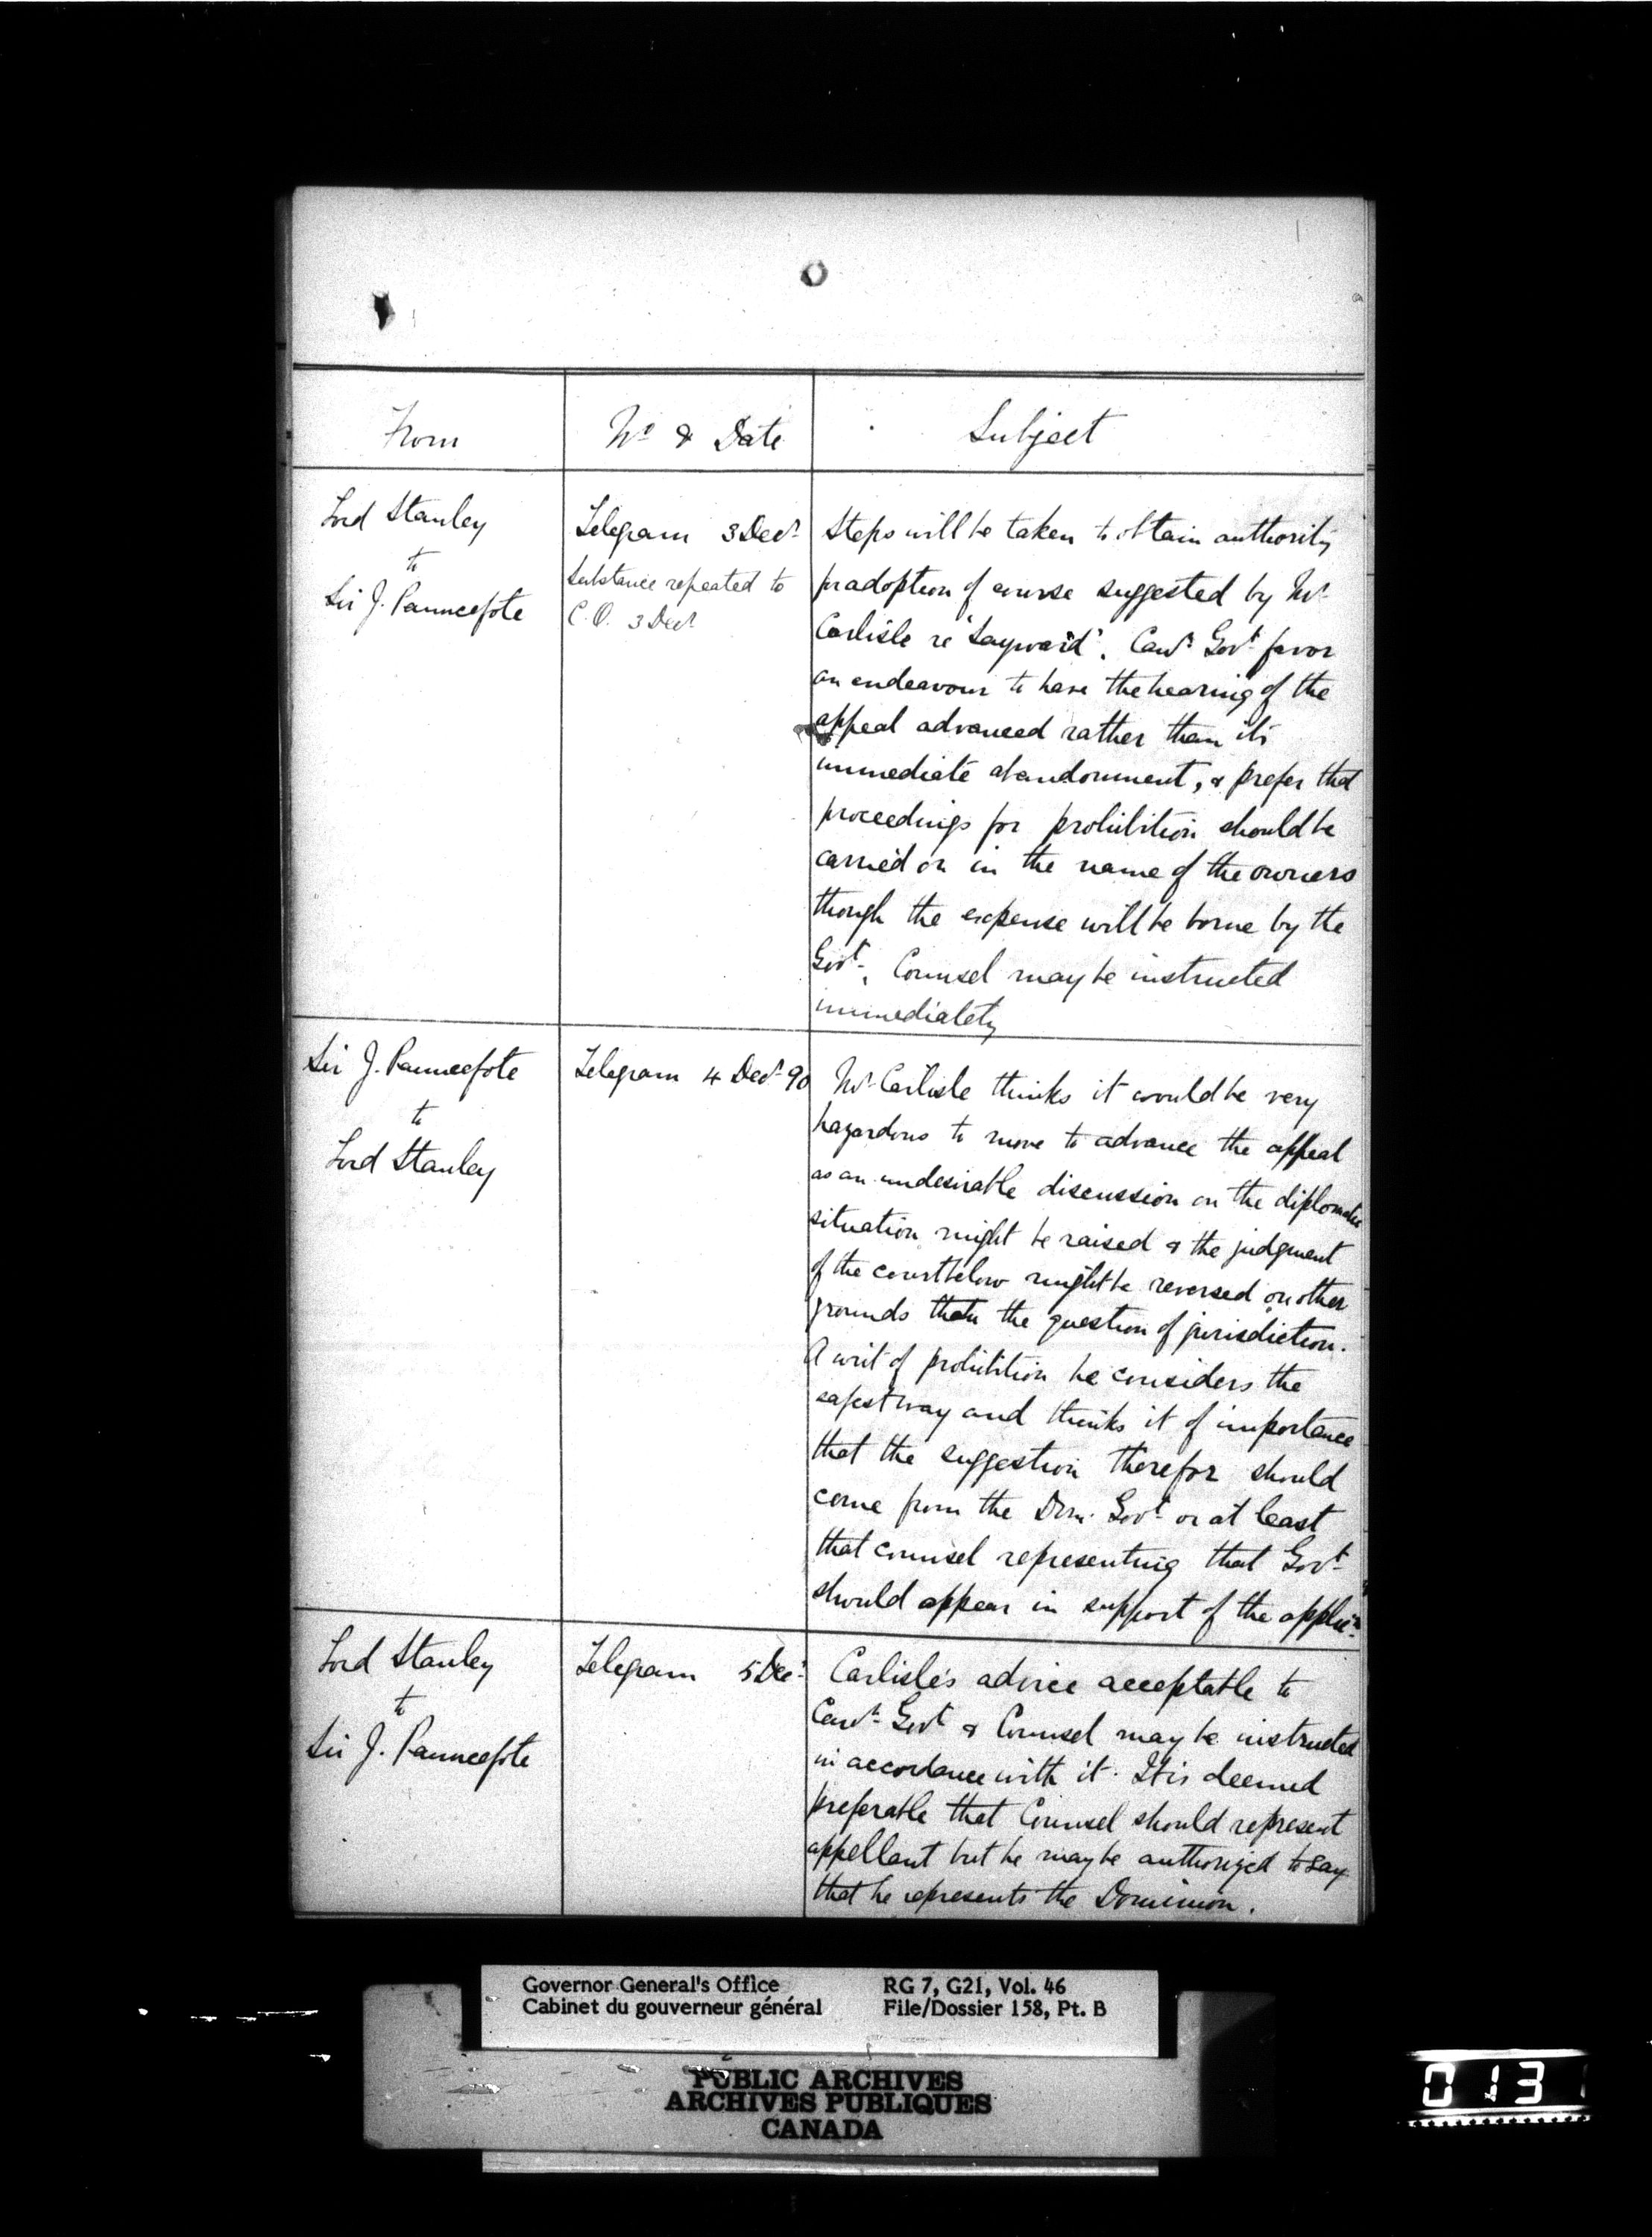 From
No & Date
Subject
Lord Stanley
to
Sir J. Pauncefote
Telegram 3 Decr.
Substance repeated to
C.O. 3 Decr
Steps will be taken to obtain authority
for adoption of course suggested by Mr.
Carlisle re "Sayward". Cann. Govt. favor
an endeavour to have the hearing of the
appeal advanced rather than its
immediate abandonment, & prefer that
proceedings for prohibition should be
carried on in the name of the owners
though the expense will be borne by the
Govt. Counsel may be instructed
immediately
Sir J. Pauncefote
to
Lord Stanley
Telegram 4 Decr. 90
Mr. Carlisle thinks it would be very
hazardous to move to advance the appeal
as an undesirable discussion on the diplomatic
situation might be raised & the judgment
of the court below might be reversed on other
grounds than the question of jurisdiction.
A writ of prohibition he considers the
safest way and thinks it of importance
that the suggestion therefor should
come from the Dom. Govt. or at least
that counsel representing that Govt.
should appear in support of the applicn.
Lord Stanley
to
Sir J. Pauncefote
Telegram 5 Dec.
Carlisle's advice acceptable to
Cann. Govt & Counsel may be instructed
in accordance with it. It is deemed
preferable that Counsel should represent
appellant but he may be authorized to say
that he represents the Dominion.
Governor General's Office
Cabinet du gouverneur général
RG 7, G21, Vol. 46
File/Dossier 158, Pt. B
PUBLIC ARCHIVES
ARCHIVES PUBLIQUES
CANADA
013